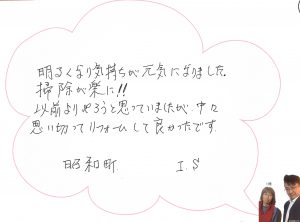 明るくなり気持ちが元気になりました.
掃除が楽に!!
以前よりやろうと思っていましたが、中々
思い切ってリフォームして良かったです.
昭和町 I.S